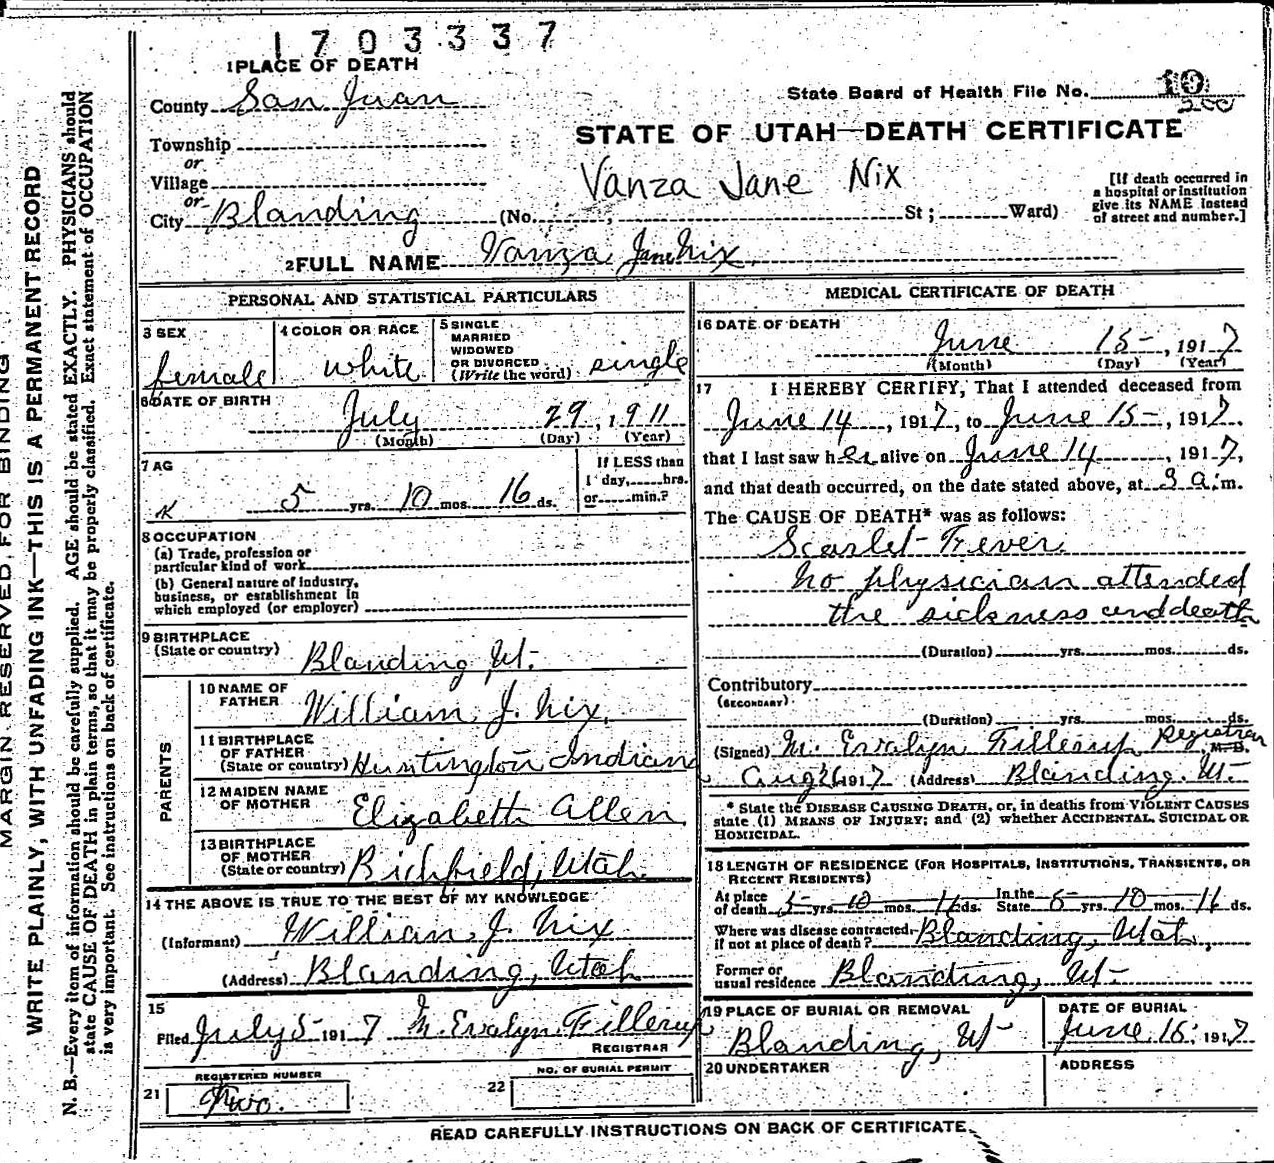 1703337
1 PLACE OF DEATH
County San Juan
State Board of Health File No. 10
200
STATE OF UTAH—DEATH CERTIFICATE
Township
or
Village
or
City Blanding (No. , St; Ward)
Vanza Jane Nix
[If death occurred in
a hospital or institution
give its NAME instead
of street and number.]
2 FULL NAME Vanza Jane Nix
PERSONAL AND STATISTICAL PARTICULARS
3 SEX
female
4 COLOR OR RACE
white
5 SINGLE
MARRIED
WIDOWED
OR DIVORCED
(Write the word) single
6 DATE OF BIRTH
July 29, 1911
(Month) (Day) (Year)
7 AG
5 yrs. 10 mos. 16 ds.
If LESS than
1 day, hrs.
or min.?
8 OCCUPATION
(a) Trade, profession or
particular kind of work
(b) General nature of industry,
business, or establishment in
which employed (or employer)
9 BIRTHPLACE
(State or country) Blanding Ut.
PARENTS
10 NAME OF
FATHER William J. Nix,
11 BIRTHPLACE
OF FATHER
(State or country) Huntington Indiana
12 MAIDEN NAME
OF MOTHER Elizabeth Allen
13 BIRTHPLACE
OF MOTHER
(State or country) Richfield, Utah
14 THE ABOVE IS TRUE TO THE BEST OF MY KNOWLEDGE
(Informant) William J. Nix
(Address) Blanding, Utah
15
Filed July 5 1917 M. Evalyn Fillerup
REGISTRAR
REGISTERED NUMBER
21 Two.
NO. OF BURIAL PERMIT
22
MEDICAL CERTIFICATE OF DEATH
16 DATE OF DEATH
June 15, 1917
(Month) (Day) (Year)
17 I HEREBY CERTIFY, That I attended deceased from
June 14, 1917, to June 15, 1917.
that I last saw her alive on June 14, 1917,
and that death occurred, on the date stated above, at 3 a.m.
The CAUSE OF DEATH* was as follows:
Scarlet Fever.
No physician attended
the sickness and death
(Duration) yrs. mos. ds.
Contributory
(SECONDARY)
(Duration) yrs. mos. ds.
(Signed) M. Evalyn Fillerup Registrar M. D.
Aug 26 1917 (Address) Blanding. Ut
* State the DISEASE CAUSING DEATH, or, in deaths from VIOLENT CAUSES
state (1) MEANS OF INJURY; and (2) whether ACCIDENTAL, SUICIDAL OR
HOMICIDAL.
18 LENGTH OF RESIDENCE (FOR HOSPITALS, INSTITUTIONS, TRANSIENTS, OR
RECENT RESIDENTS)
At place
of death 5 yrs. 10 mos. 16 ds. In the
State 5 yrs. 10 mos. 16 ds.
Where was disease contracted
if not at place of death? Blanding, Utah,
Former or
usual residence Blanding, Ut.
19 PLACE OF BURIAL OR REMOVAL
Blanding, Ut
DATE OF BURIAL
June 16, 1917
20 UNDERTAKER
ADDRESS
READ CAREFULLY INSTRUCTIONS ON BACK OF CERTIFICATE.
MARGIN RESERVED FOR BINDING
WRITE PLAINLY, WITH UNFADING INK—THIS IS A PERMANENT RECORD
N. B.—Every item of information should be carefully supplied. AGE should be stated EXACTLY. PHYSICIANS should
state CAUSE OF DEATH in plain terms, so that it may be properly classified. Exact statement of OCCUPATION
is very important. See instructions on back of certificate.